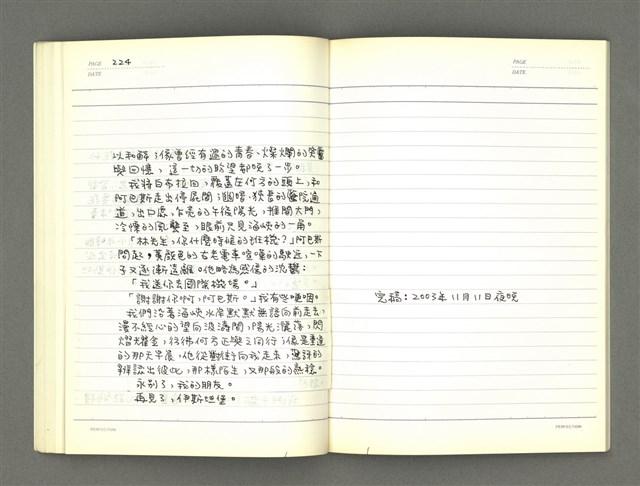 PAGE 224
DATE
以和解;像曾經有過的青春、燦爛的笑靨
與回憶,這一切的盼望都晚了一步。
我將白布拉回,覆蓋在何方的頭上,和
阿巴斯走出停屍間;幽暗、狹長的醫院通
道,出口處,亮亮的午後陽光,推開大門,
冷慄的風襲至,眼前只見海峽的一角。
「林先生,你什麼時候的班機?」阿巴斯
問起,黃顏色的古老電車喧嘩的駛近,一下
子又逐漸遠離。他略為憔倦的沈鬱:
「我送你去國際機場。」
「謝謝你啊,阿巴斯。」我有些哽咽。
我們沿著海峽水岸默默無語向前走去,
漫不經心的望向波濤間,陽光灑落,閃
熠燦金,彷彿何方正與之同行;像是重逢
的那天早晨,他從對街向我走來,遲疑的
辨認出彼此,那樣陌生,又那般的熟稔。
永別了,我的朋友。
再見了,伊斯坦堡。
PERFECTION
PAGE
DATE
完稿:2003年11月11日夜晚
PERFECTION